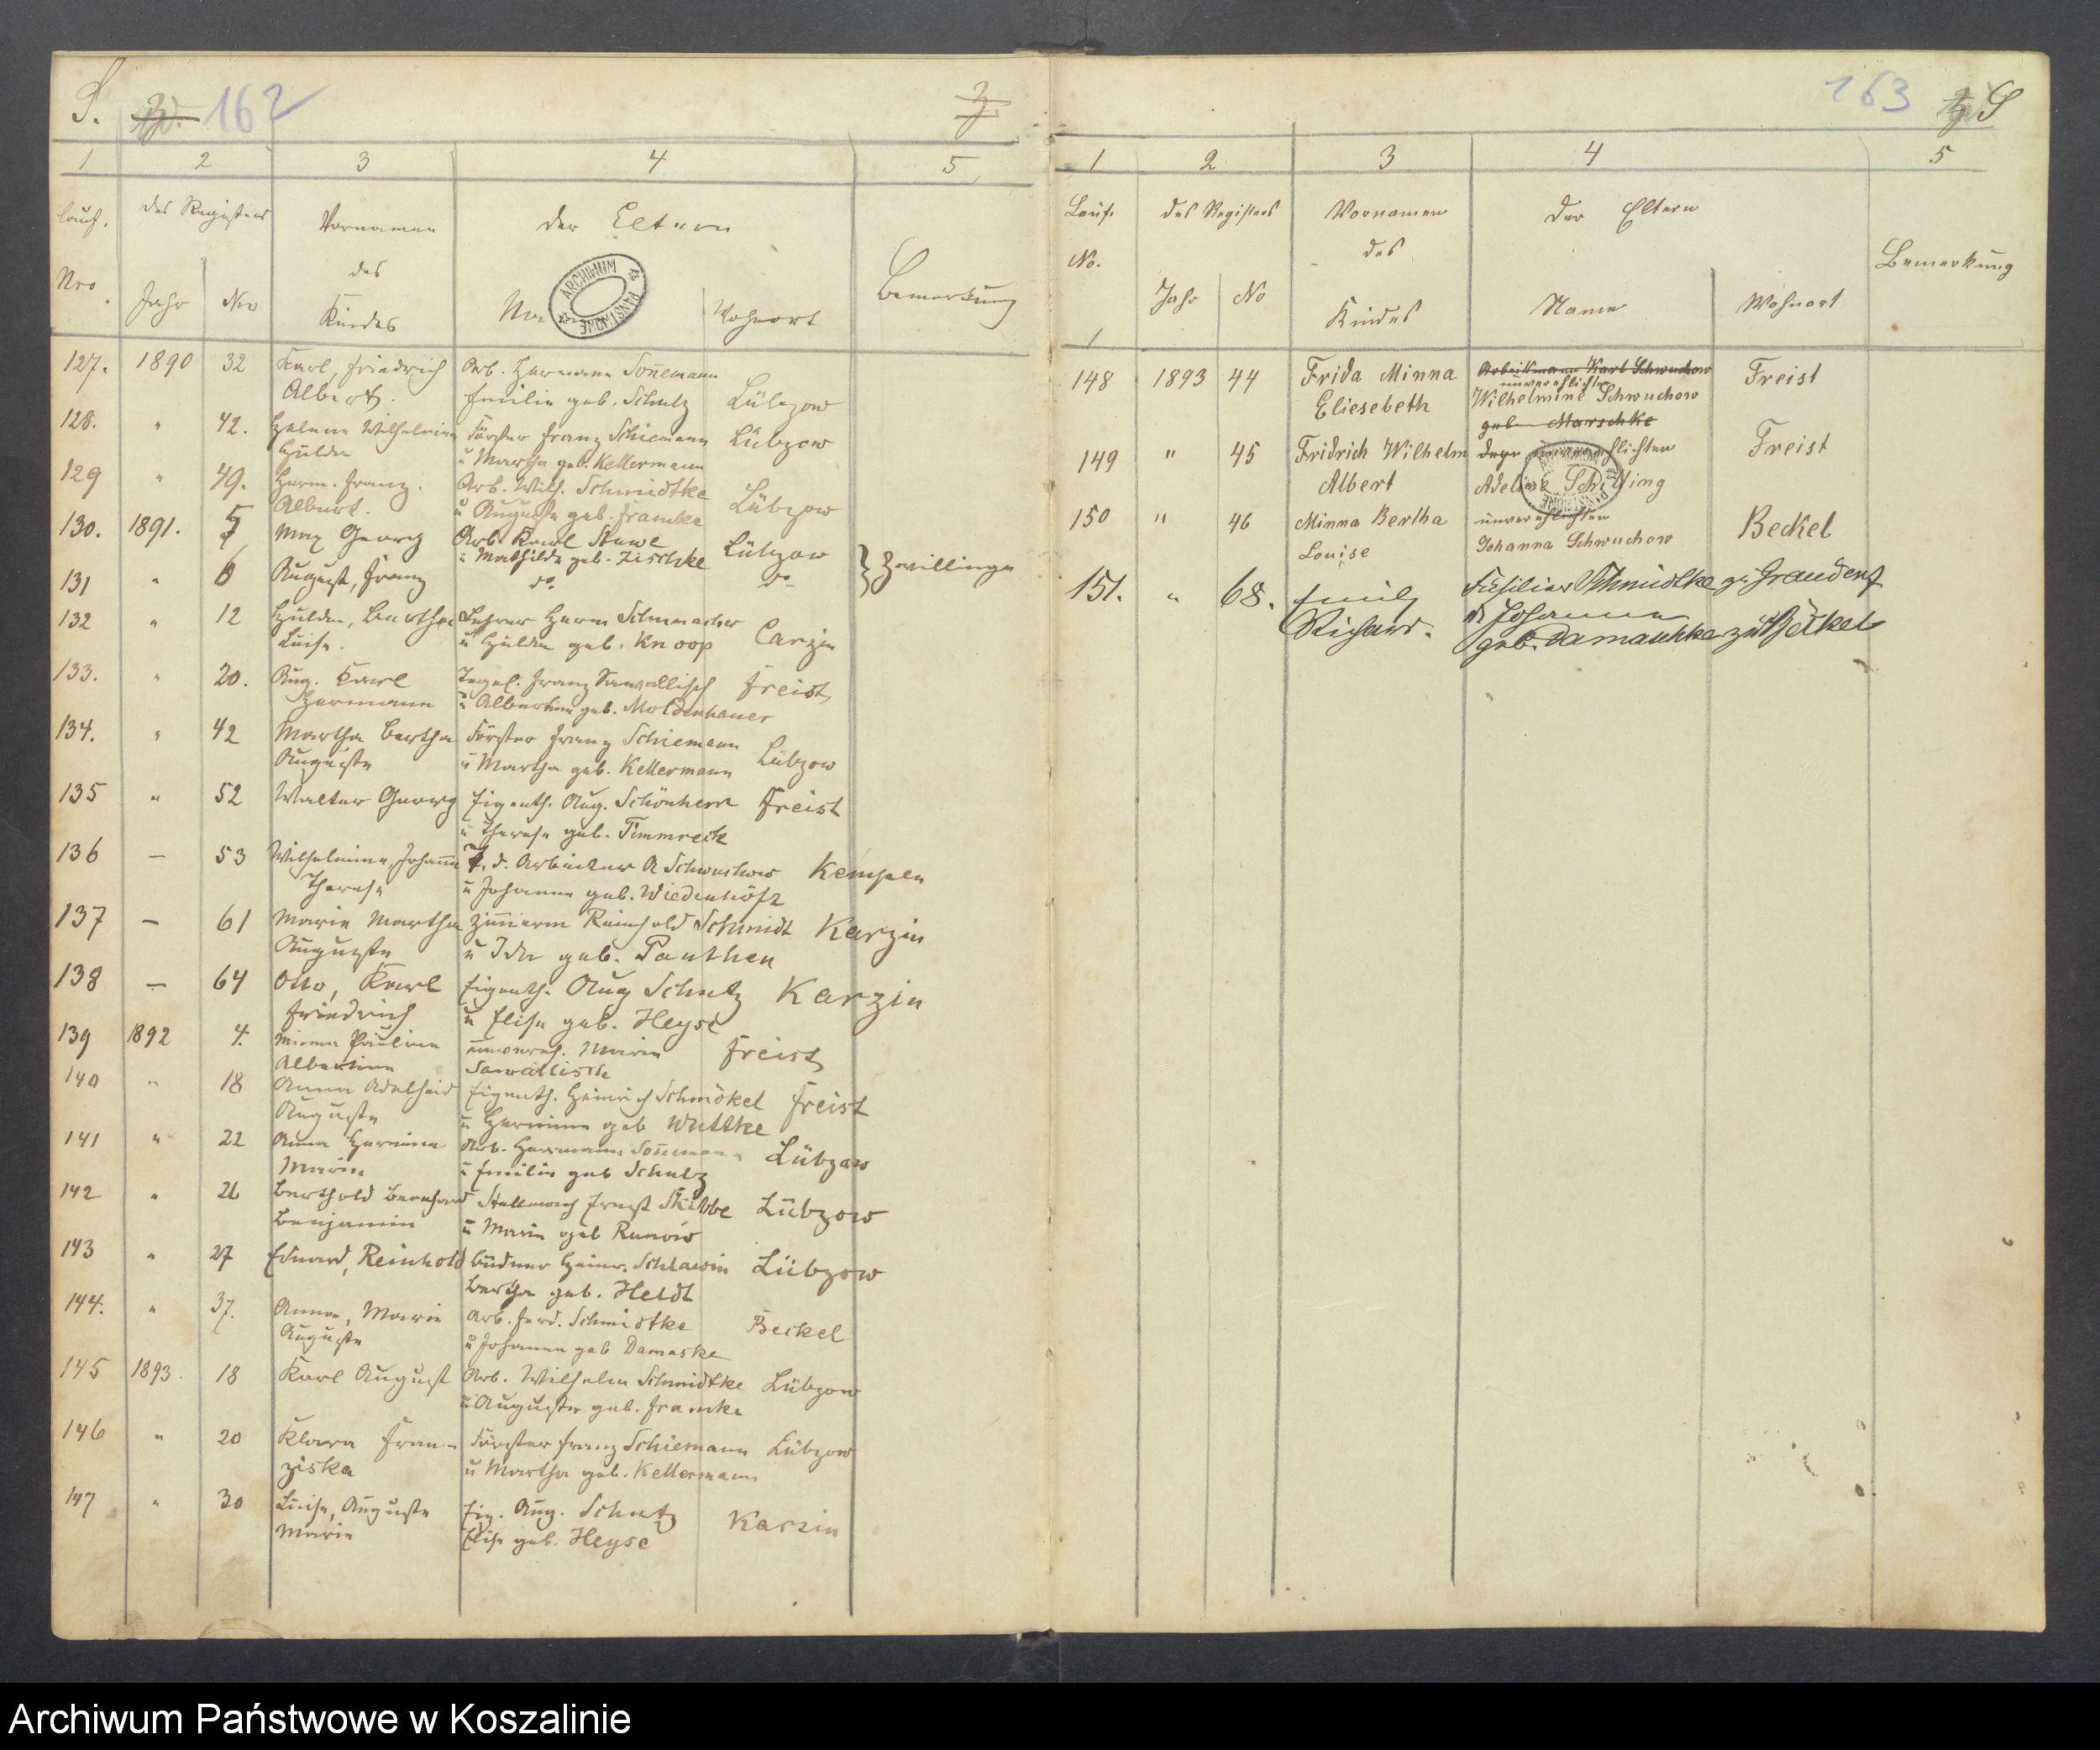 S. 162 Z
1 2 3 4 5
lauf. des Registers Vornamen der Eltern
Nro des Bemerkung
Jahr Nro Kindes Na Wohnort
127. 1890 32 Karl, Friedrich Arb. Hermann Sonnemann
Albert. Emilie geb. Schulz Lübzow
128. " 42. Helene Wilhelmine Förster Franz Schiemann Lübzow
Hulda u Martha geb. Kellermann
129 " 49. Herm. Franz. Arb. Wilh. Schmidtke
Albert. u Auguste geb. Francke Lübzow
130. 1891. 5 Max Georg Arb. Karl Stuwe Lübzow
u Mathilde geb. Zischke } Zwillinge
131 " 6 August, Franz do. do
132 " 12 Hulda, Bertha Lehrer Herm Schumacher
Luise. u Hulda geb. Knoop Carzin
133. " 20. Aug. Karl Franz Sawallisch Freist
Hermann u Albertine geb. Moldenhauer
134. " 42 Martha Bertha Förster Franz Schiemann
Auguste u Martha geb. Kellermann Lübzow
135 " 52 Walter Georg Eigenth. Aug. Schönherr Freist
u Therese geb. Timmreck
136 — 53 Wilhelmine, Johanne T. d. Arbeiter A Schwuchow Kempen
Therese u Johanne geb. Wiedenhöft
137 — 61 Marie Martha Zimmerm Reinhold Schmidt Karzin
Auguste u Ida geb. Panthen
138 — 64 Otto, Karl Eigenth. Aug Schulz Karzin
Friedrich u Elise geb. Heyse
139 1892 4. Minna Pauline unvereh. Marie Freist
Albertine Sawallisch
140 " 18 Anna Adelheid Eigenth. Heinrich Schmökel Freist
Auguste u Hermine geb Wuttke
141 " 22 Anna Hermine Arb. Herrmann Sonnemann Lübzow
Marie u Emilie geb Schulz
142 " 26 Berthold Bernhard Stellmach Ernst Skibbe Lübzow
Benjamin u Marie geb Runow
143 " 27 Eduard, Reinhold Büdner Heinr. Schlawin Lübzow
Bertha geb. Heldt
144. " 37. Anna, Marie Arb. Ferd. Schmidtke Beckel
Auguste u Johanna geb Damaske
145 1893. 18 Karl August Arb. Wilhelm Schmidtke Lübzow
u Auguste geb. Francke
146 " 20 Klara Fran- Förster Franz Schiemann Lübzow
ziska u Martha geb. Kellermann
147 " 30 Luise, Auguste Eig. Aug. Schulz Karzin
Marie Elise geb. Heyse
163 S
1 2 3 4 5
Lauf. des Registers Vornamen der Eltern
No. des Bemerkung
Jahr No Kindes Name Wohnort
148 1893 44 Frida Minna Arbeitmann Karl Schwuchow Freist
unverehlichte
Eliesebeth Wilhelmine Schwuchow
geb Marschke
149 " 45 Fridrich Wilhelm der unverehlichten Freist
Albert Adeline Schilling
150 " 46 Minna Bertha unverehlichten Beckel
Louise Johanna Schwuchow
151. " 68. Emil Füsilier Schmidtke zu Graudenz
Richard. u Johanna
geb. Damaschke zu Beckel
ARCHIWUM PAŃSTWOWE
Archiwum Państwowe w Koszalinie